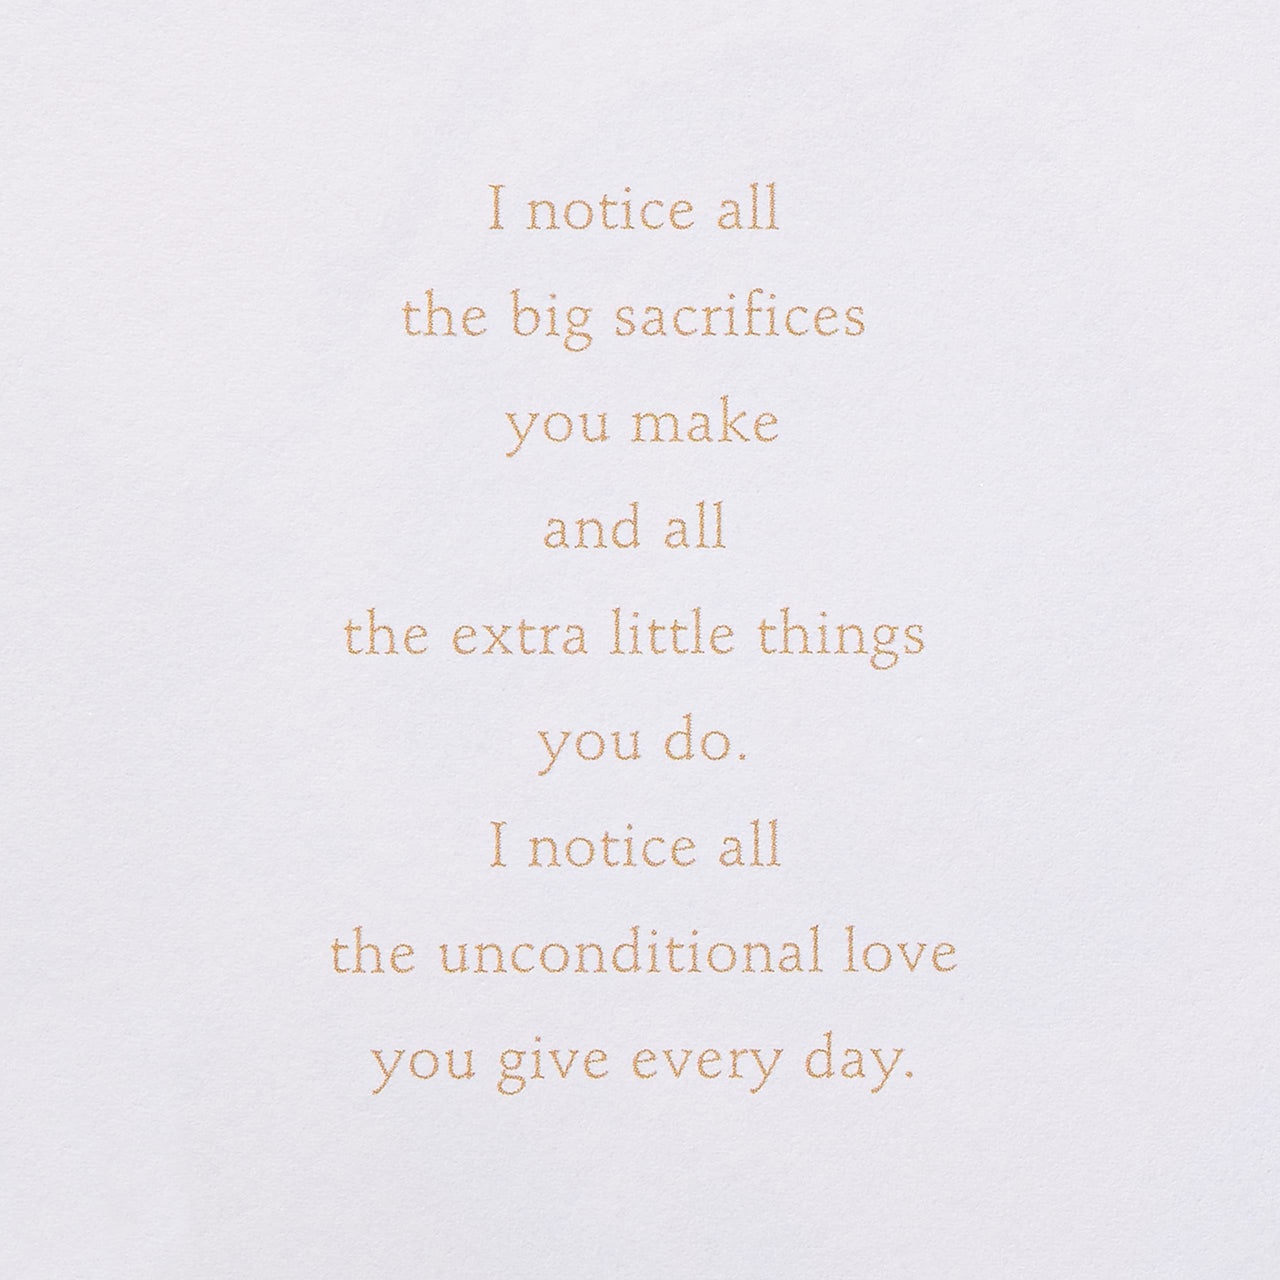 I notice all
the big sacrifices
you make
and all
the extra little things
you do.
I notice all
the unconditional love
you give every day.